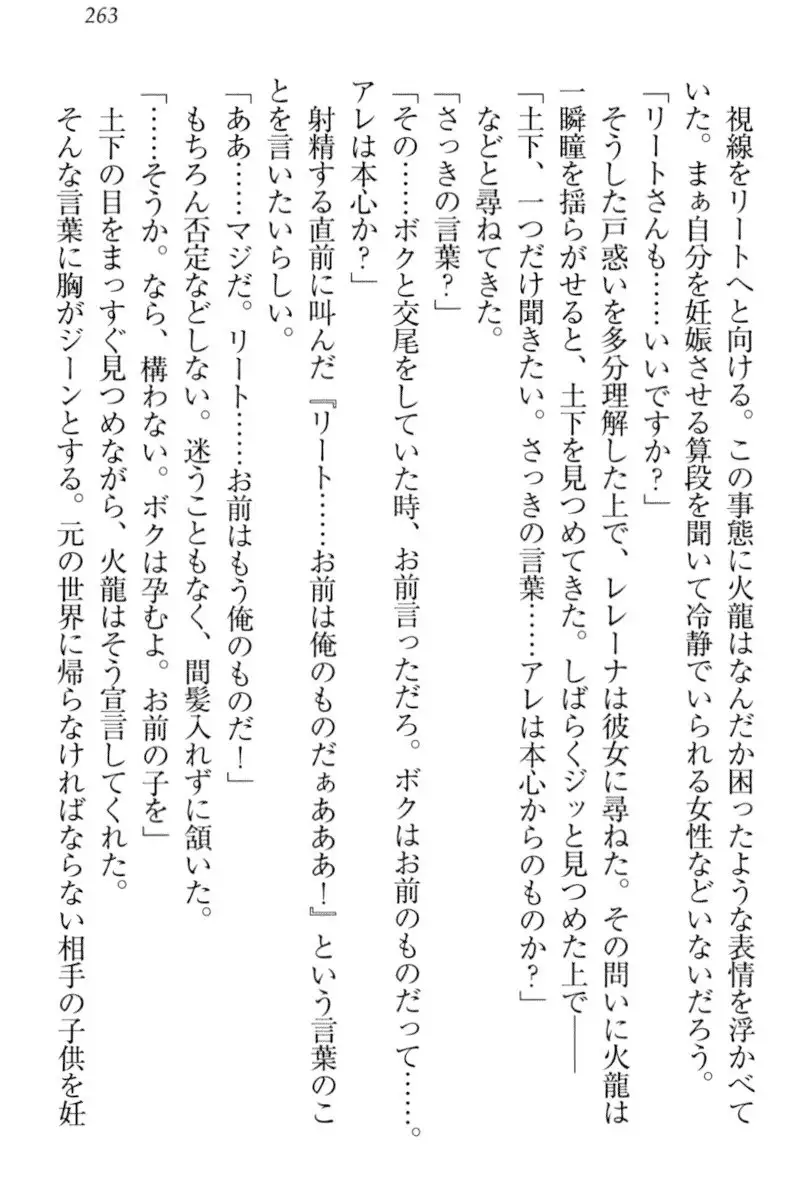 263
視線をリートへと向ける。この事態に火龍はなんだか困ったような表情を浮かべて
いた。まぁ自分を妊娠させる算段を聞いて冷静でいられる女性などいないだろう。
「リートさんも……いいですか？」
そうした戸惑いを多分理解した上で、レレーナは彼女に尋ねた。その問いに火龍は
一瞬瞳を揺らがせると、土下を見つめてきた。しばらくジッと見つめた上で――
「土下、一つだけ聞きたい。さっきの言葉……アレは本心からのものか？」
などと尋ねてきた。
「さっきの言葉？」
「その……ボクと交尾をしていた時、お前言っただろ。ボクはお前のものだって……。
アレは本心か？」
射精する直前に叫んだ『リート……お前は俺のものだぁあああ！』という言葉のこ
とを言いたいらしい。
「ああ……マジだ。リート……お前はもう俺のものだ！」
もちろん否定などしない。迷うこともなく、間髪入れずに頷いた。
「……そうか。なら、構わない。ボクは孕むよ。お前の子を」
土下の目をまっすぐ見つめながら、火龍はそう宣言してくれた。
そんな言葉に胸がジーンとする。元の世界に帰らなければならない相手の子供を妊